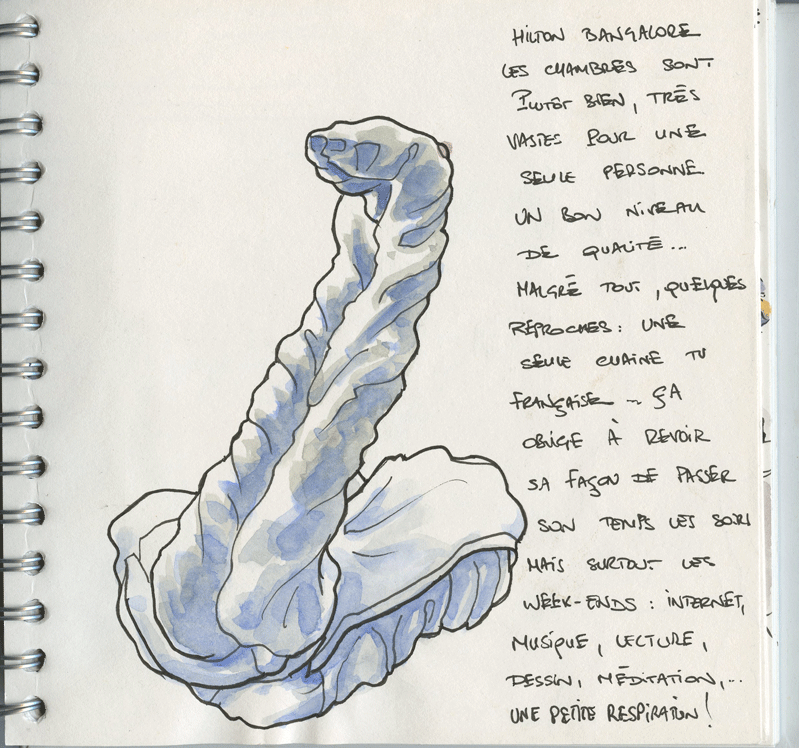 HILTON BANGALORE
LES CHAMBRES SONT
PLUTÔT BIEN, TRÈS
VASTES POUR UNE
SEULE PERSONNE
UN BON NIVEAU
DE QUALITÉ...
MALGRÉ TOUT, QUELQUES
REPROCHES : UNE
SEULE CHAINE TV
FRANÇAISE – ÇA
OBLIGE À REVOIR
SA FAÇON DE PASSER
SON TEMPS LES SOIRS
MAIS SURTOUT LES
WEEK-ENDS : INTERNET,
MUSIQUE, LECTURE,
DESSIN, MÉDITATION,...
UNE PETITE RESPIRATION !